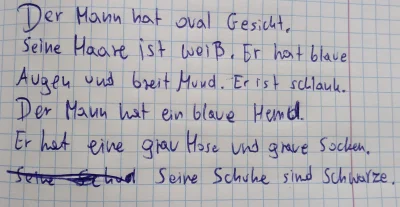 Der Mann hat oval Gesicht.
Seine Haare ist weiß. Er hat blaue
Augen und breit Mund. Er ist schlank.
Der Mann hat ein blaue Hemd.
Er hat eine grau Hose und graue Socken.
Seine Schuhe sind Schwarze.